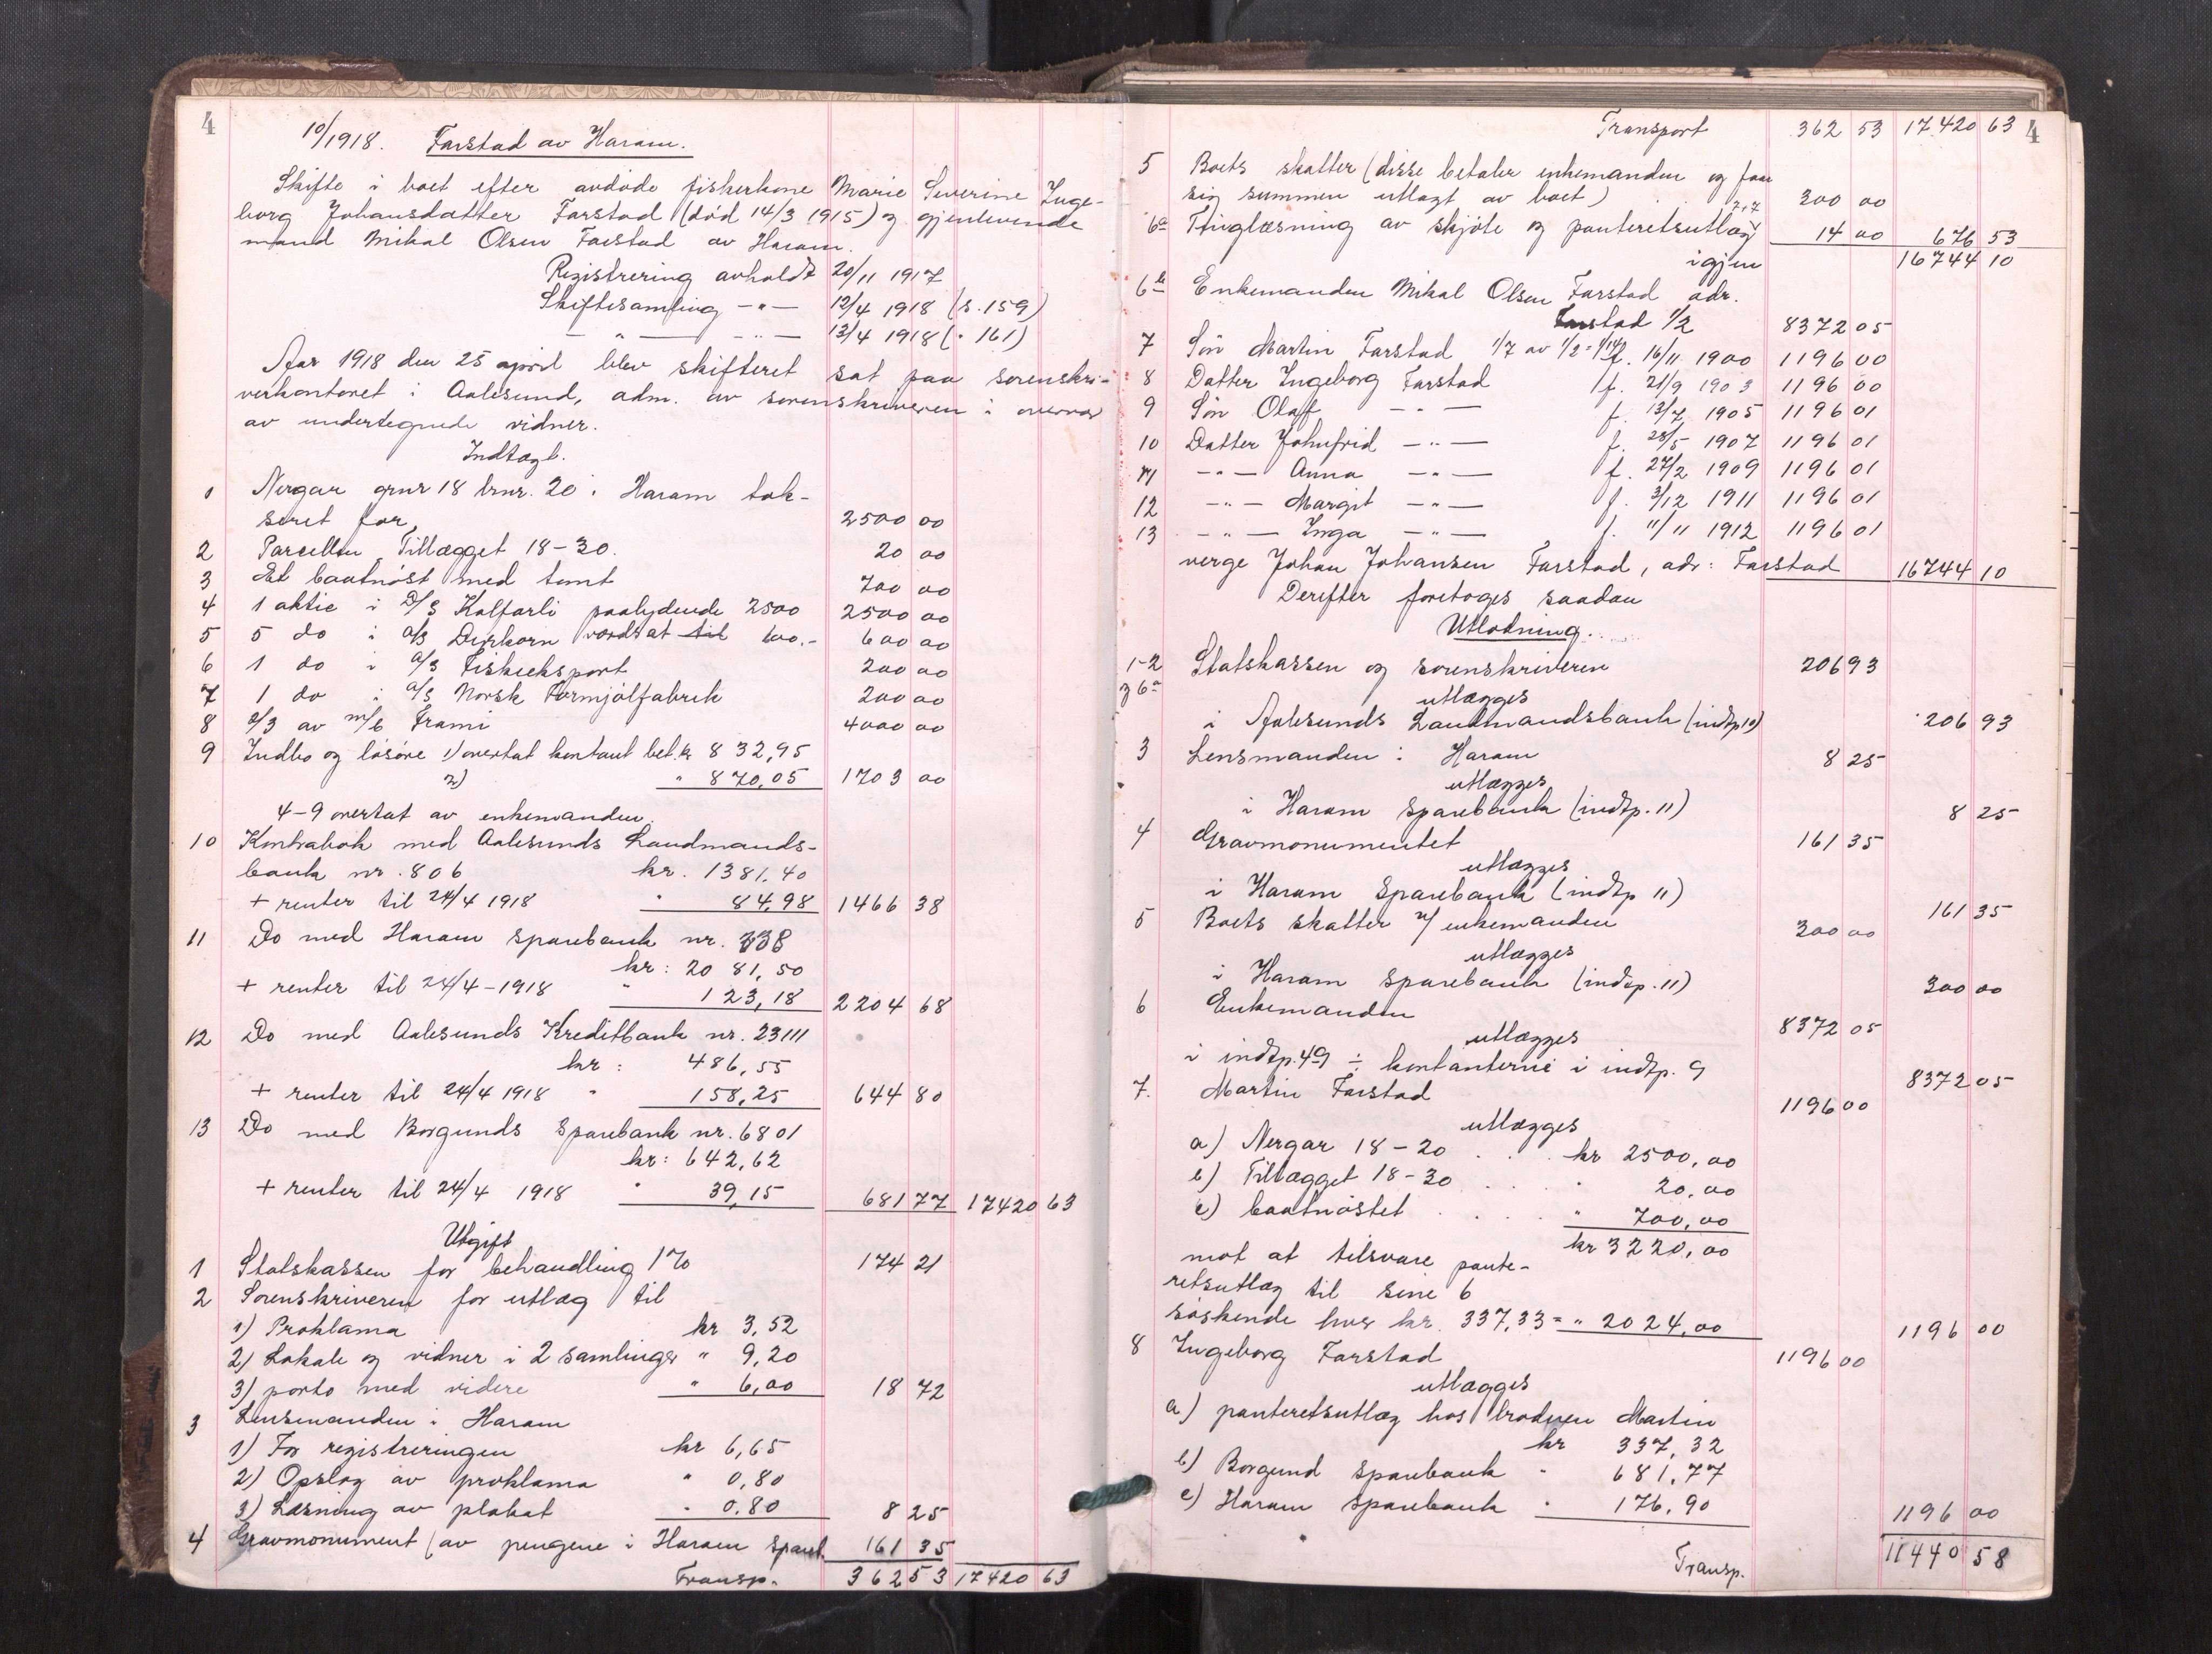 4
10/1918. Farstad av Haram.
Skifte i boet efter avdøde fiskerkone Marie Severine Inge-
borg Johansdatter Farstad (død 14/3 1915) og gjenlevende
mand Mikal Olsen Farstad av Haram.
Registrering avholdt 20/11 1917
Skiftesamling -"- 12/4 1918 (s. 159)
- " - -"- 13/4 1918 (" 161)
Aar 1918 den 25 april blev skifteret sat paa sorenskri-
verkontoret i Aalesund, adm. av sorenskriveren i overvær
av undertegnede vidner.
Indtægt.
1 Nergar gnr 18 brnr. 20 i Haram tak-
seret for, 2500 00
2 Parcellen Tillægget 18-30. 20 00
3 Et baatnøst med tomt 700 00
4 1 aktie i D/S Kalfarli paalydende 2500 2500 00
5 5 do i A/S Dyrkorn værdsat til 600.- 600 00
6 1 do i A/S Fiskeeksport 200 00
7 1 do i A/S Norsk Formjølfabrik 200 00
8 2/3 av m/b Frami 4000 00
9 Indbo og løsøre 1) overtat kontant bet. kr 832,95
2) " 870,05 1703 00
4-9 overtat av enkemanden.
10 Kontrabok med Aalesunds Landmands-
bank nr. 806 kr. 1381.40
+ renter til 24/4 1918 " 84,98 1466 38
11 Do med Haram sparebank nr. 338
kr: 2081,50
+ renter til 24/4-1918 " 123,18 2204 68
12 Do med Aalesunds Kreditbank nr. 23111
kr: 486,55
+ renter til 24/4 1918 " 158,25 644 80
13 Do med Borgunds Sparebank nr. 6801
kr: 642,62
+ renter til 24/4 1918 " 39,15 681 77 17420 63
Utgift
1 Statskassen for behandling 1% 174 21
2 Sorenskriveren for utlæg til
1) Proklama kr 3,52
2) Lokale og vidner i 2 samlinger " 9,20
3) porto med videre " 6,00 18 72
3 Lensmanden i Haram
1) For registreringen kr 6,65
2) Opslag av proklama " 0,80
3) Læsning av plakat " 0.80 8 25
4 Gravmonument (av pengene i Haram spareb. 161 35
Transp. 362 53 17420 63
4
Transport 362 53 17.420 63
5 Boets skatter (disse betaler enkemanden og faar
sig summen utlagt av boet) 300 00
6a Thinglæsning av skjøte og panteretsutlæg 7+7 14 00 676 53
igjen 16744 10
6b Enkemanden Mikal Olsen Farstad adr.
Farstad 1/2 8372 05
7 Søn Martin Farstad 1/7 av 1/2 = 1/14 f. 16/11 1900 1196 00
8 Datter Ingeborg Farstad f. 21/9 1903 1196 00
9 Søn Olaf -"- f. 13/7 1905 1196 01
10 Datter Johnfrid -"- f. 28/5 1907 1196 01
11 -"- Anna -"- f. 27/2 1909 1196 01
12 -"- Margit -"- f. 3/12 1911 1196 01
13 -"- Inga -"- f. 11/11 1912 1196 01
verge Johan Johansen Farstad, adr: Farstad 16744 10
Derefter foretoges saadan
Utlodning.
1-2 Statskassen og sorenskriveren 206 93
og 6a utlægges
i Aalesunds Landmandsbank (indtp 10) 206 93
3 Lensmanden i Haram 8 25
utlægges
i Haram sparebank (indtp. 11) 8 25
4 Gravmonumentet 161 35
utlægges
i Haram Sparebank (indtp 11) 161 35
5 Boets skatter v/ enkemanden 300 00
utlægges
i Haram sparebank (indtp. 11) 300 00
6 Enkemanden 8372 05
utlægges
i indtp. 4-9 ÷ kontanterne i indtp. 9 8372 05
7. Martin Farstad 1196 00
utlægges
a) Nergar 18-20 . . . kr 2500,00
b) Tillægget 18-30 . . . " 20.00
c) baatnøstet . . . . " 700,00
kr 3220,00
mot at tilsvare pante-
retsutlæg til sine 6
søskende hver kr. 337,33 = " 2024,00 1196 00
8 Ingeborg Farstad 1196 00
utlægges
a) panteretsutlæg hos broderen Martin
kr 337,32
b) Borgund sparebank " 681,77
c) Haram sparebank " 176,90 1196 00
Transp. 11440 58